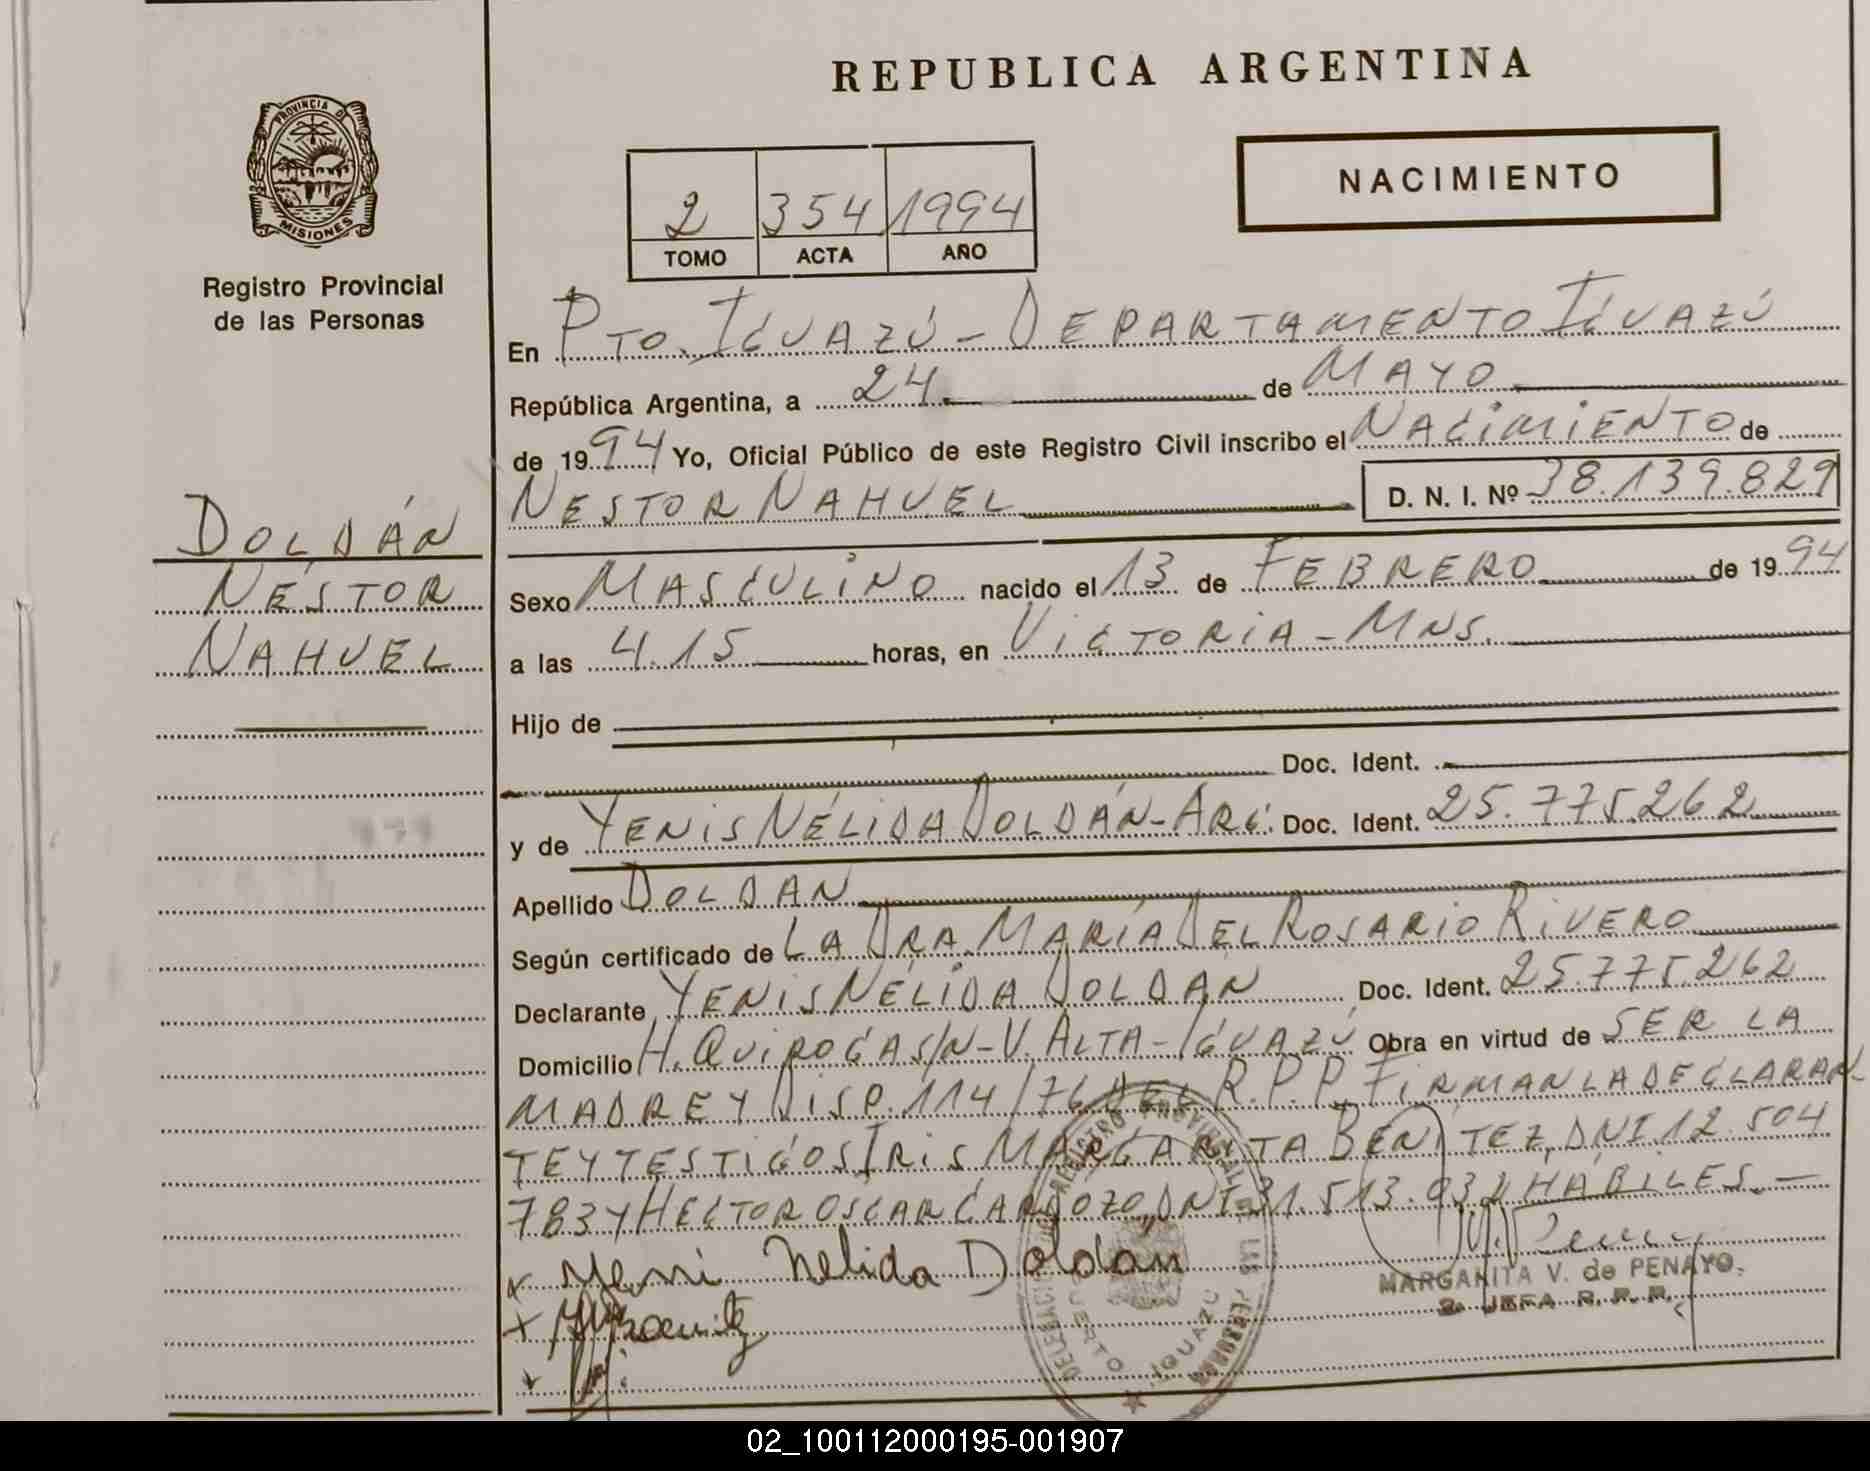 REPUBLICA ARGENTINA
PROVINCIA D
MISIONES
Registro Provincial
de las Personas
NACIMIENTO
2 354 1994
TOMO ACTA AÑO
En PTO. IGUAZÚ - DEPARTAMENTO IGUAZÚ
República Argentina, a 24 de MAYO
de 1994 Yo, Oficial Público de este Registro Civil inscribo el NACIMIENTO de
NESTOR NAHUEL D. N. I. Nº 38.139.829
DOLDÁN
NÉSTOR
NAHUEL
Sexo MASCULINO nacido el 13 de FEBRERO de 1994
a las 4.15 horas, en VICTORIA - MNS.
Hijo de
Doc. Ident.
y de YENIS NÉLIDA DOLDÁN - ARG. Doc. Ident. 25.775.262
Apellido DOLDAN
Según certificado de LA DRA. MARÍA DEL ROSARIO RIVERO
Declarante YENIS NÉLIDA DOLDAN Doc. Ident. 25.775.262
Domicilio H. QUIROGA S/N - V. ALTA - IGUAZÚ Obra en virtud de SER LA
MADRE Y DISP. 114/76 DEL R.P.P. FIRMAN LA DECLARAN-
TE Y TESTIGOS IRIS MARGARITA BENITEZ, DNI 12.504
783 Y HECTOR OSCAR CARDOZO DNI 31.513. HÁBILES. -
x Yeni Nelida Doldán
MARGARITA V. de PENAYO
2. JEFA R. P. P.
REGISTRO PROVINCIAL DE LAS PERSONAS
PUERTO IGUAZU
02_100112000195-001907